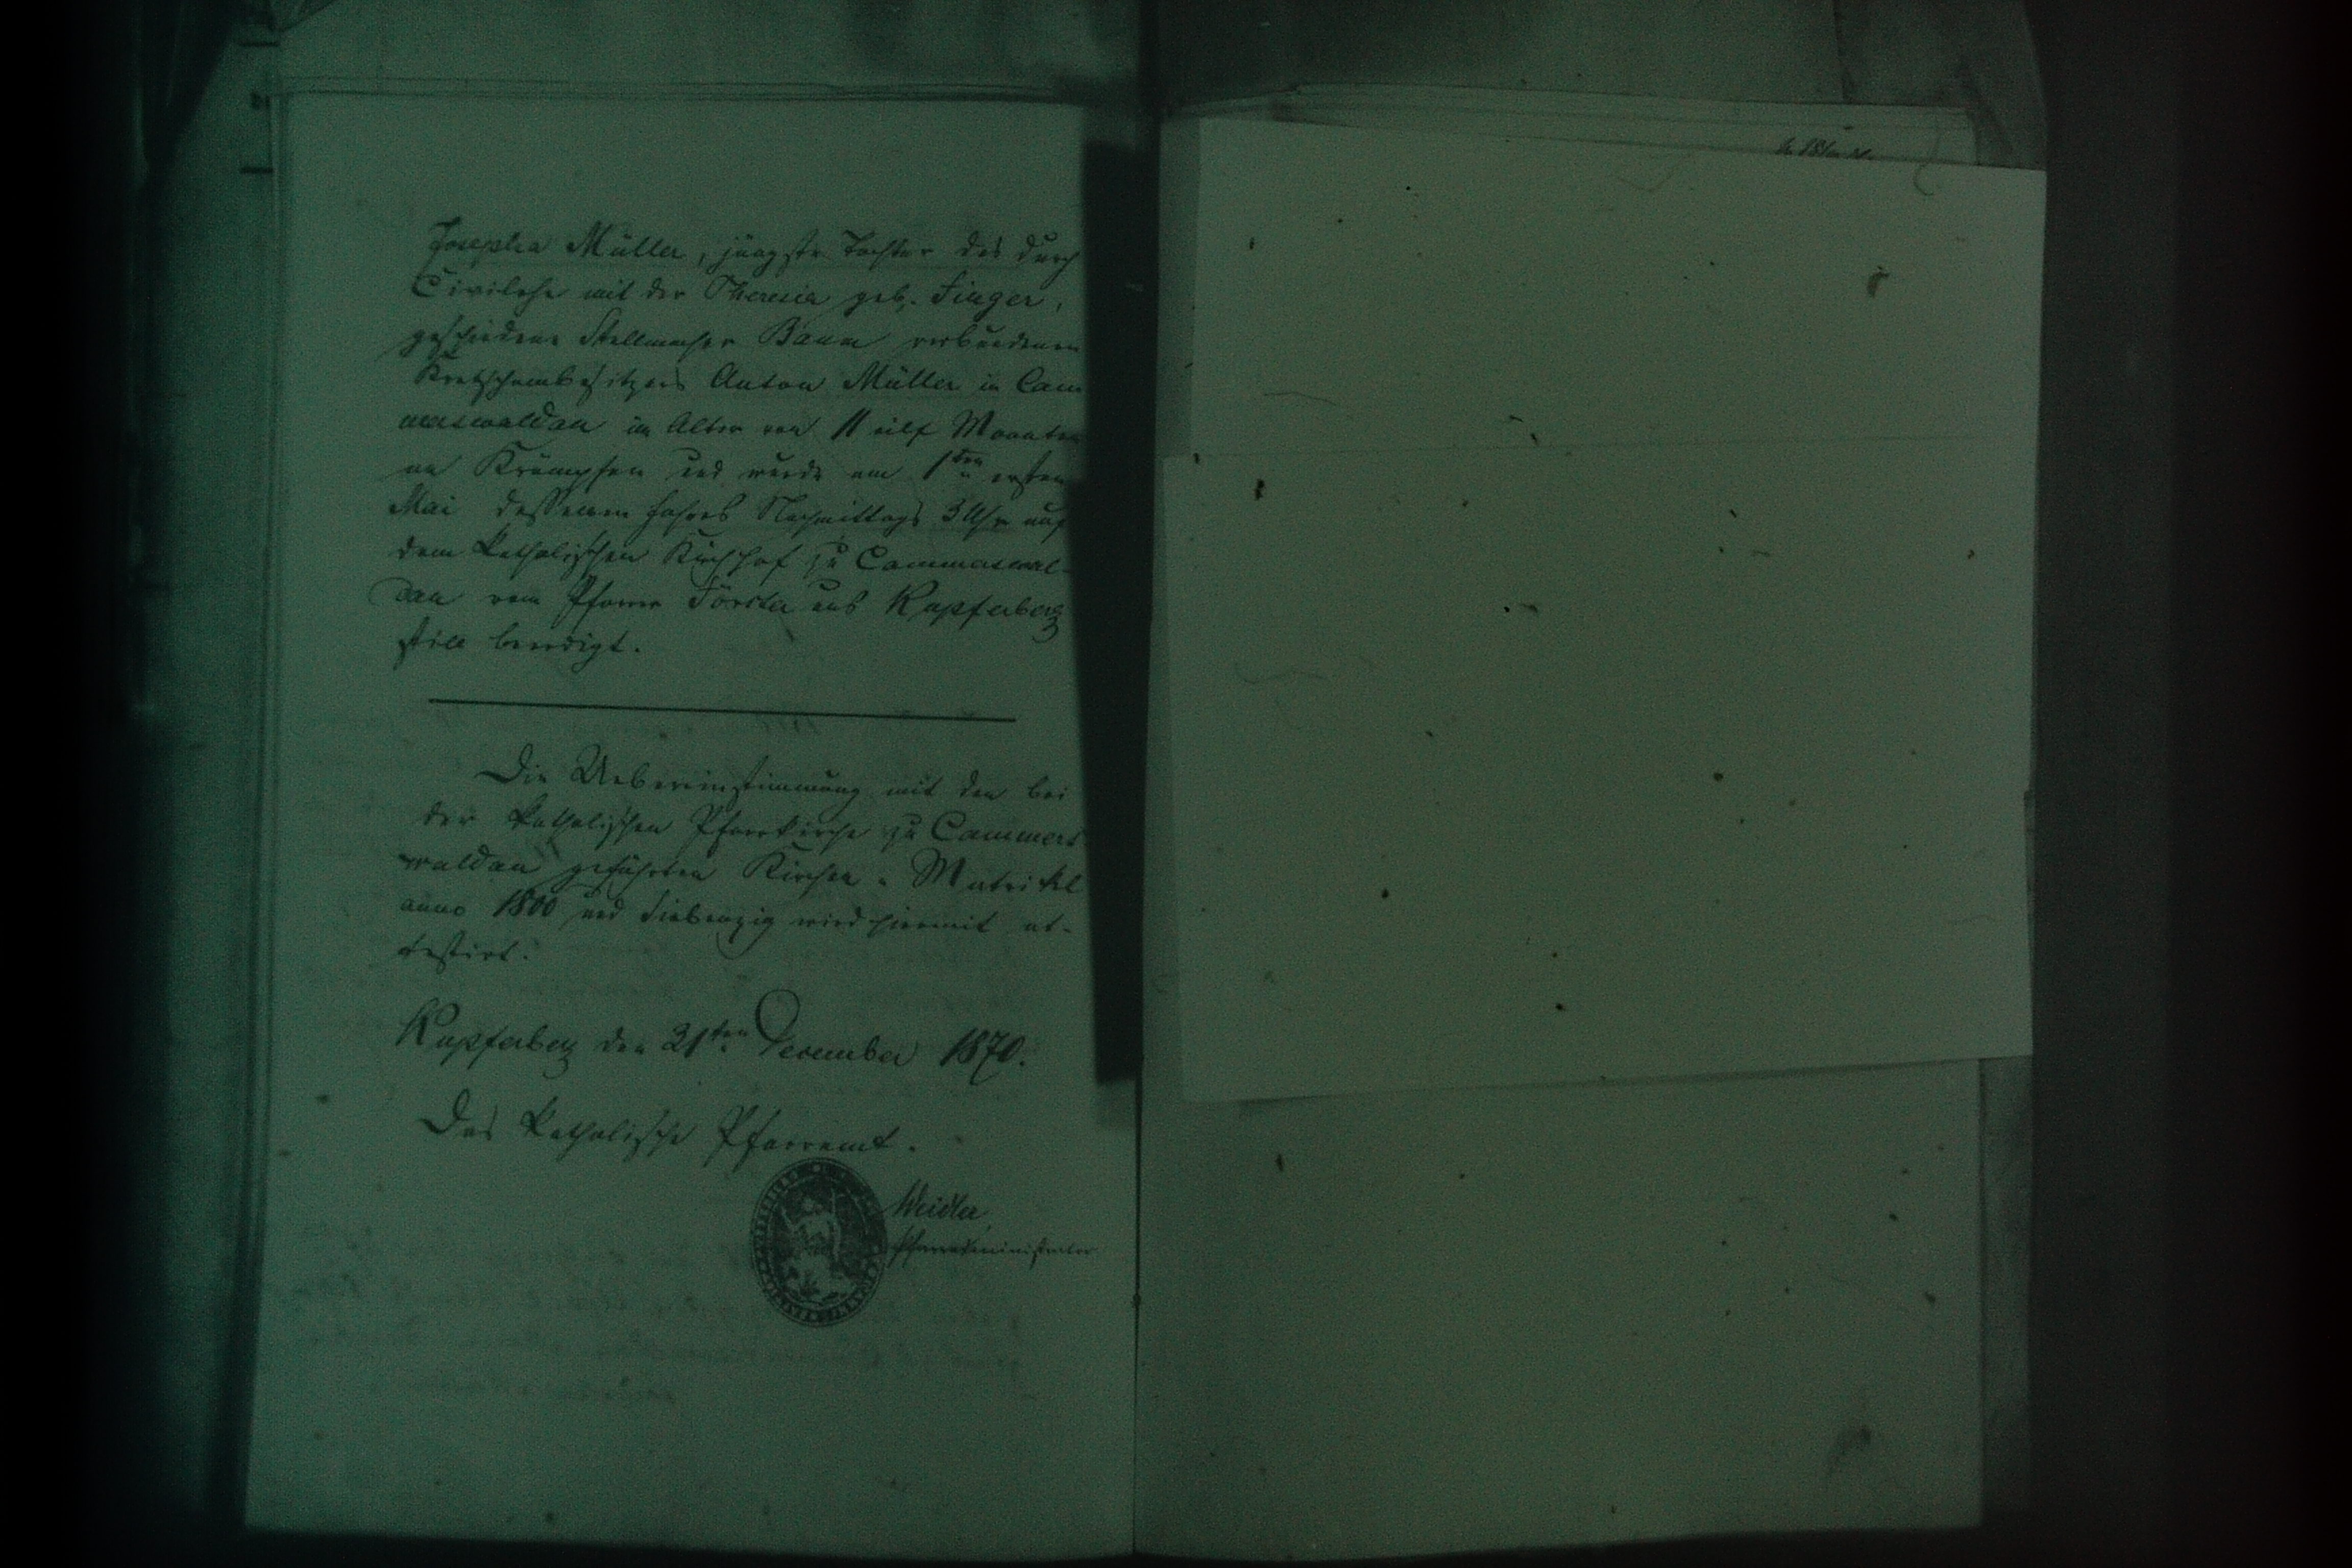 Josepha Müller, jüngste Tochter des durch
Civilehe mit der Theresia geb. Singer,
geschiedene Stellmacher Baum verbundenen
Kretschambesitzers Anton Müller in Cam
merswaldau im Alter von 11 eilf Monaten
an Krämpfen und wurde am 1ten ersten
Mai desselben Jahres Nachmittags 3 Uhr auf
dem katholischen Kirchhof zu Cammerswal-
dau vom Pfarrer Förster aus Kupferberg
still beerdigt.
Die Uebereinstimmung mit den bei
der katholischen Pfarrkirche zu Cammers
waldau geführten Kirchen-Matrikel
anno 1800 und Siebenzig wird hiermit at-
testirt.
Kupferberg den 21ten December 1870.
Das katholische Pfarramt.
Weidler
Pfarradministrator